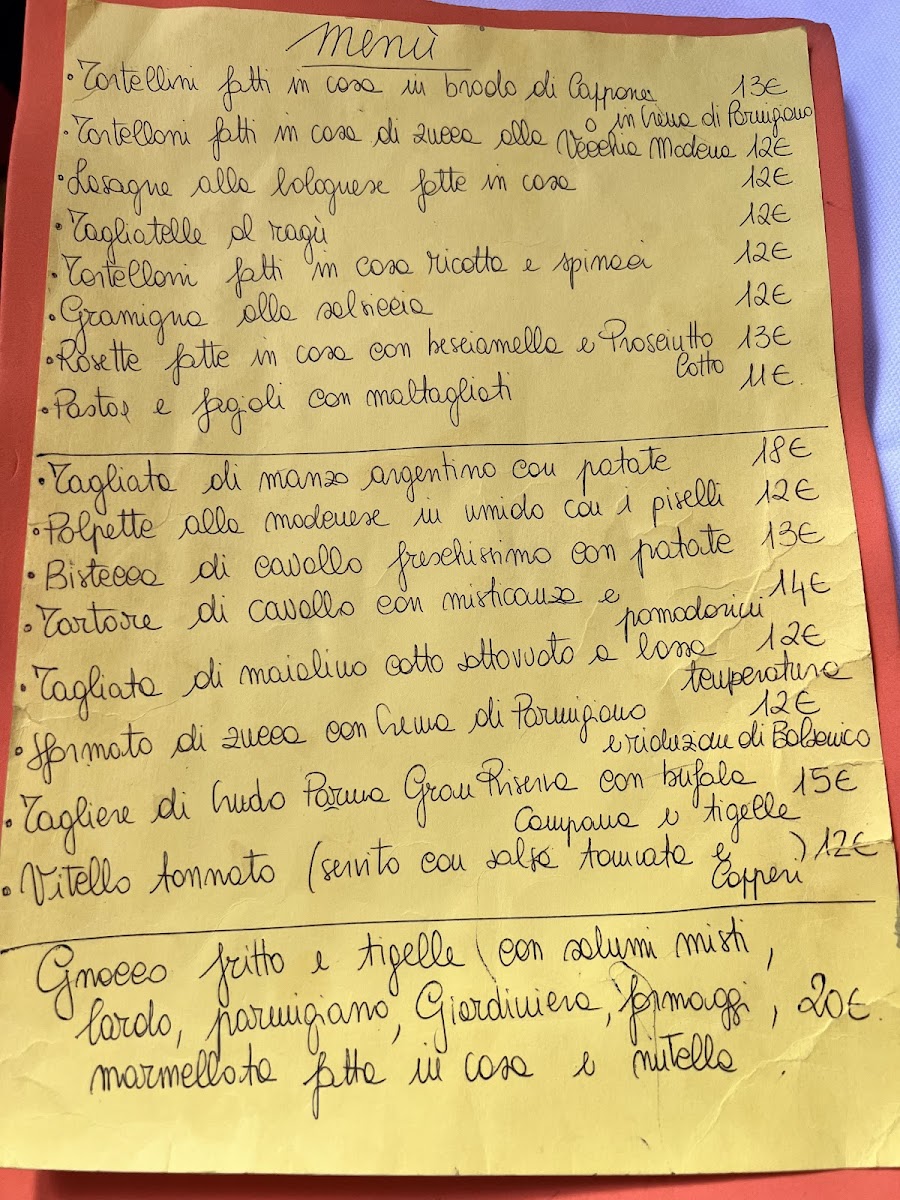 Menù
• Tortellini fatti in casa in brodo di Cappone 13€
o in Crema di Parmigiano
• Tortelloni fatti in casa di zucca alla Vecchia Modena 12€
• Lasagne alla bolognese fatte in casa 12€
• Tagliatelle al ragù 12€
• Tortelloni fatti in casa ricotta e spinaci 12€
• Gramigna alla salsiccia 12€
• Rosette fatte in casa con besciamella e Prosciutto 13€
Cotto
• Pasta e fagioli con maltagliati 11€.
• Tagliata di manzo argentino con patate 18€
• Polpette alla modenese in umido con i piselli 12€
• Bistecca di cavallo freschissimo con patate 13€
• Tartare di cavallo con misticanza e 14€
pomodorini
• Tagliata di maialino cotto sottovuoto a bassa 12€
temperatura
• Sformato di zucca con Crema di Parmigiano 12€
e riduzione di Balsamico
• Tagliere di Crudo Parma Gran Riserva con bufala 15€
Campana e tigelle
• Vitello tonnato (servito con salsa tonnata e ) 12€
Capperi
Gnocco fritto e tigelle con salumi misti,
lardo, parmigiano, Giardiniera, formaggi, 20€.
marmellata fatta in casa e nutella